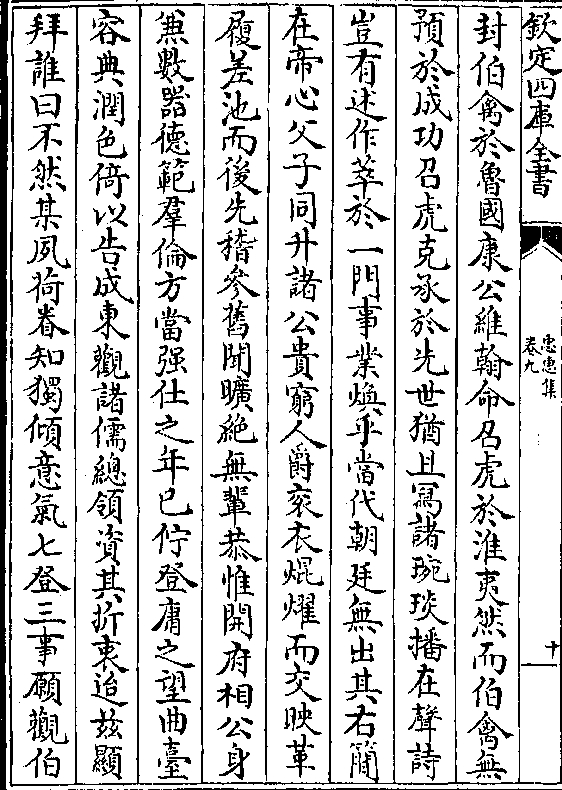 欽定四庫全書
惠惠集
卷九
十
封伯禽於魯國康公維翰命召虎於淮夷然而伯禽無
預於成功召虎克承於先世猶且寫諸琬琰播在聲詩
豈有述作萃於一門事業煥乎當代朝廷無出其右簡
在帝心父子同升諸公貴窮人爵衮衣焜燿而交映革
履差池而後先稽參舊聞曠絶無輩恭惟開府相公身
兼數器德範羣倫方當强仕之年已佇登庸之望曲臺
容典潤色倚以告成東觀諸儒總領資其折衷迨兹顯
拜誰曰不然某夙荷眷知獨傾意氣七登三事願觀伯